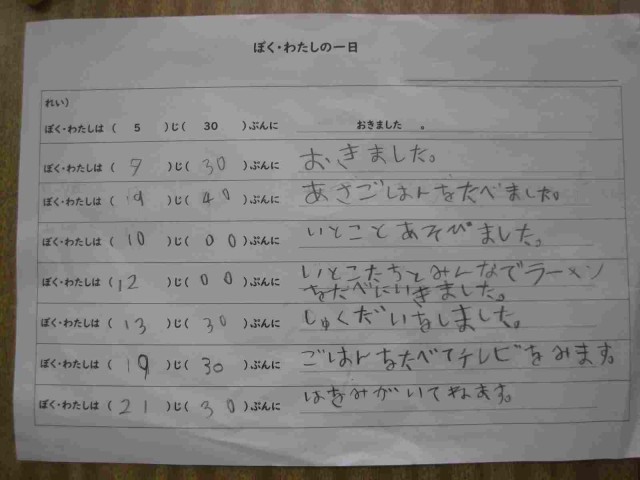 ぼく・わたしの一日
れい）
ぼく・わたしは（ 5 ）じ（ 30 ）ぷんに おきました 。
ぼく・わたしは（ 7 ）じ（ 30 ）ぷんに おきました。
ぼく・わたしは（ 9 ）じ（ 40 ）ぷんに あさごはんをたべました。
ぼく・わたしは（ 10 ）じ（ 00 ）ぷんに いとことあそびました。
ぼく・わたしは（ 12 ）じ（ 00 ）ぷんに いとこたちとみんなでラーメン
をたべにいきました。
ぼく・わたしは（ 13 ）じ（ 30 ）ぷんに しゅくだいをしました。
ぼく・わたしは（ 19 ）じ（ 30 ）ぷんに ごはんをたべてテレビをみます。
ぼく・わたしは（ 21 ）じ（ 30 ）ぷんに はをみがいてねます。